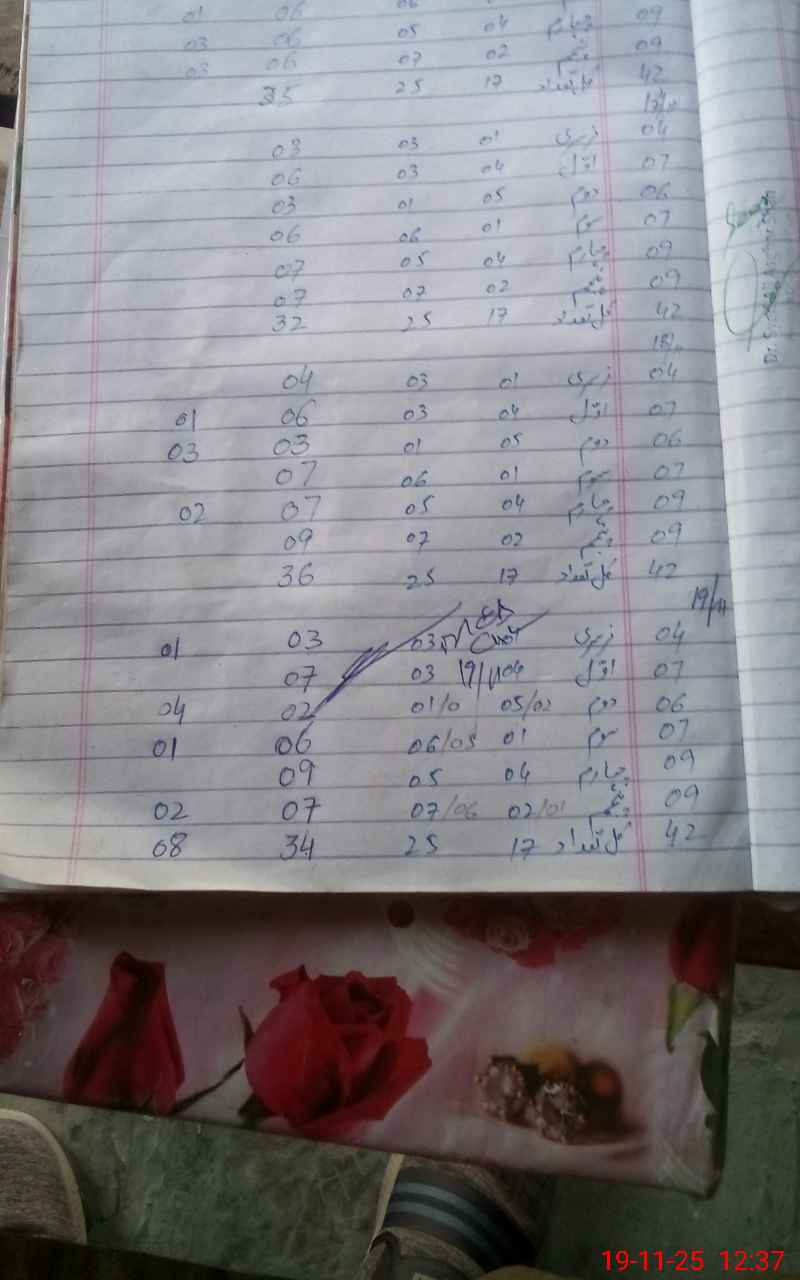 09 04 06 06 01
09 چہارم 04 05 06 03
09 پنجم 02 07 06 03
42 کل تعداد 17 25 35
04 نرسری 01 03 03
07 اوّل 04 03 06
06 دوم 05 01 03
07 سوم 01 06 06
09 چہارم 04 05 07
09 پنجم 02 07 07
42 کل تعداد 17 25 32
18/11
04 نرسری 01 03 04
07 اوّل 04 03 06 01
06 دوم 05 01 03 03
07 سوم 01 06 07
09 چہارم 04 05 07 02
09 پنجم 02 07 09
42 کل تعداد 17 25 36
19/11
04 نرسری 03 03 01
07 اوّل 04 03 07
19/11
06 دوم 05/02 01/0 02 04
07 سوم 01 06/05 06 01
09 چہارم 04 05 09
09 پنجم 02/01 07/06 07 02
42 کل تعداد 17 25 34 08
19-11-25 12:37